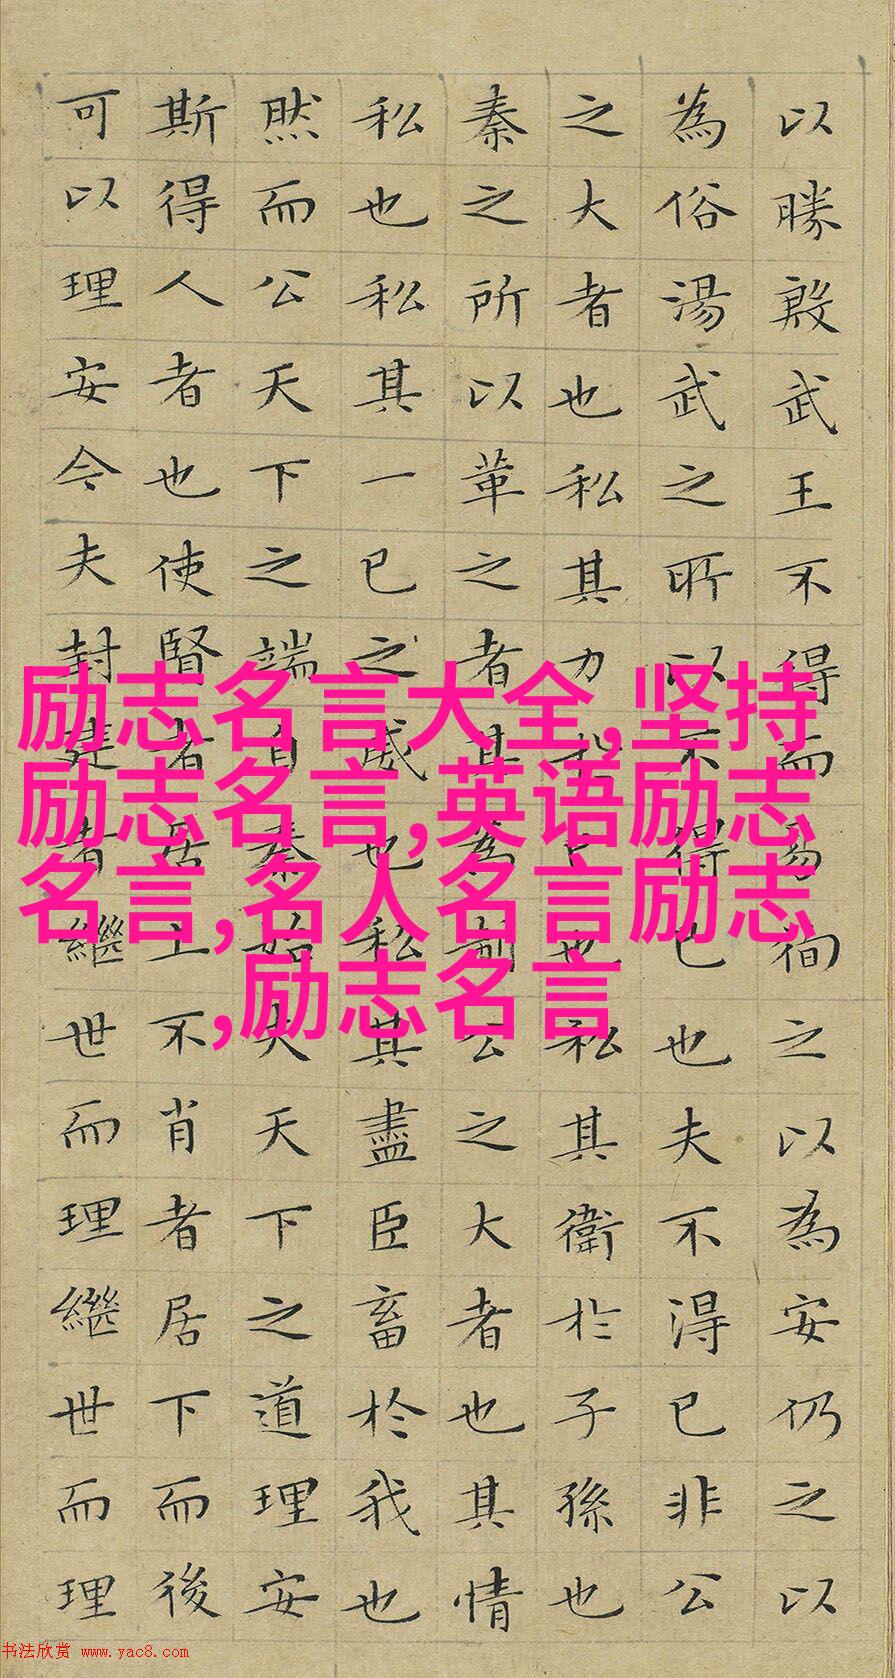 以勝殷武王不得而易徇之以為安仍之以
為俗湯武之所以不得已也夫不得已非公
之大者也私其力於己也私其衛於子孫也
秦之所以革之者其為制公之大者也其情
私也私其一己之威也私其盡臣畜於我也
然而公天下之端自秦始夫天下之道理安
斯得人者也使賢者居上不肖者居下而後
可以理安今夫封建者繼世而理繼世而理
励志名言大全,坚持
励志名言,英语励志
名言,名人名言励志
,励志名言
书法欣赏 www.yac8.com